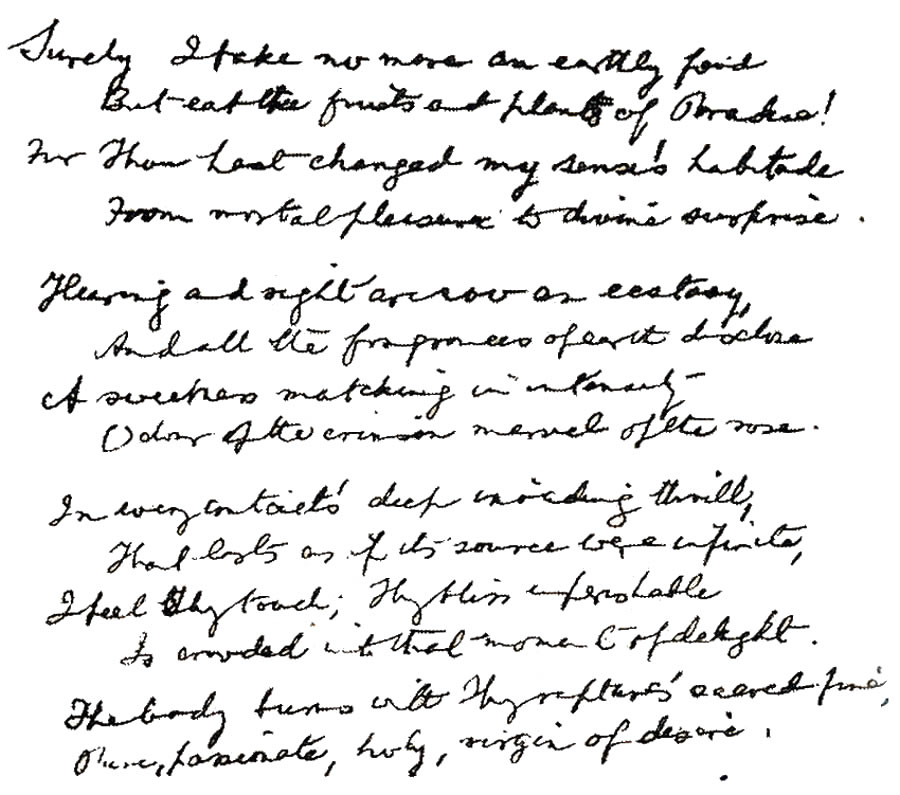 Surely I take no more an earthly food
But eat the fruits and plants of Paradise!
For Thou hast changed my sense's habitude
From mortal pleasure to divine surprise.
Hearing and sight are now an ecstasy,
And all the fragrances of earth disclose
A sweetness matching in intensity
Odour of the crimson marvel of the rose.
In every contact's deep invading thrill,
That lasts as if its source were infinite,
I feel Thy touch; Thy bliss imperishable
Is crowded into that moment of delight.
The body burns with Thy rapture's sacred fire,
Pure, passionate, holy, virgin of desire.